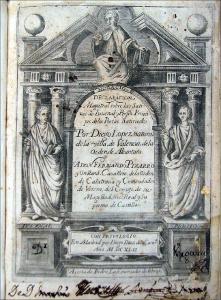 DECLARACION
Magistral sobre las Sati-
ras de Iuuenal, y Persio Princi-
pes de los Poetas Satiricos.
Por Diego Lopez, natural
de la villa de Valencia, de la
Orden de Alcantara
A DON FERNANDO PIZARRO
y Orellana, Cauallero de la Orden
de Calatraua, y Comendador
de Betera, del Consejo de su
Magestad, en el Real y Su
premo de Castilla
CON PRIVILEGIO
En Madrid por Diego Diaz
Año M. DC XLII
Acosta de Pedro Laso mercader de libros